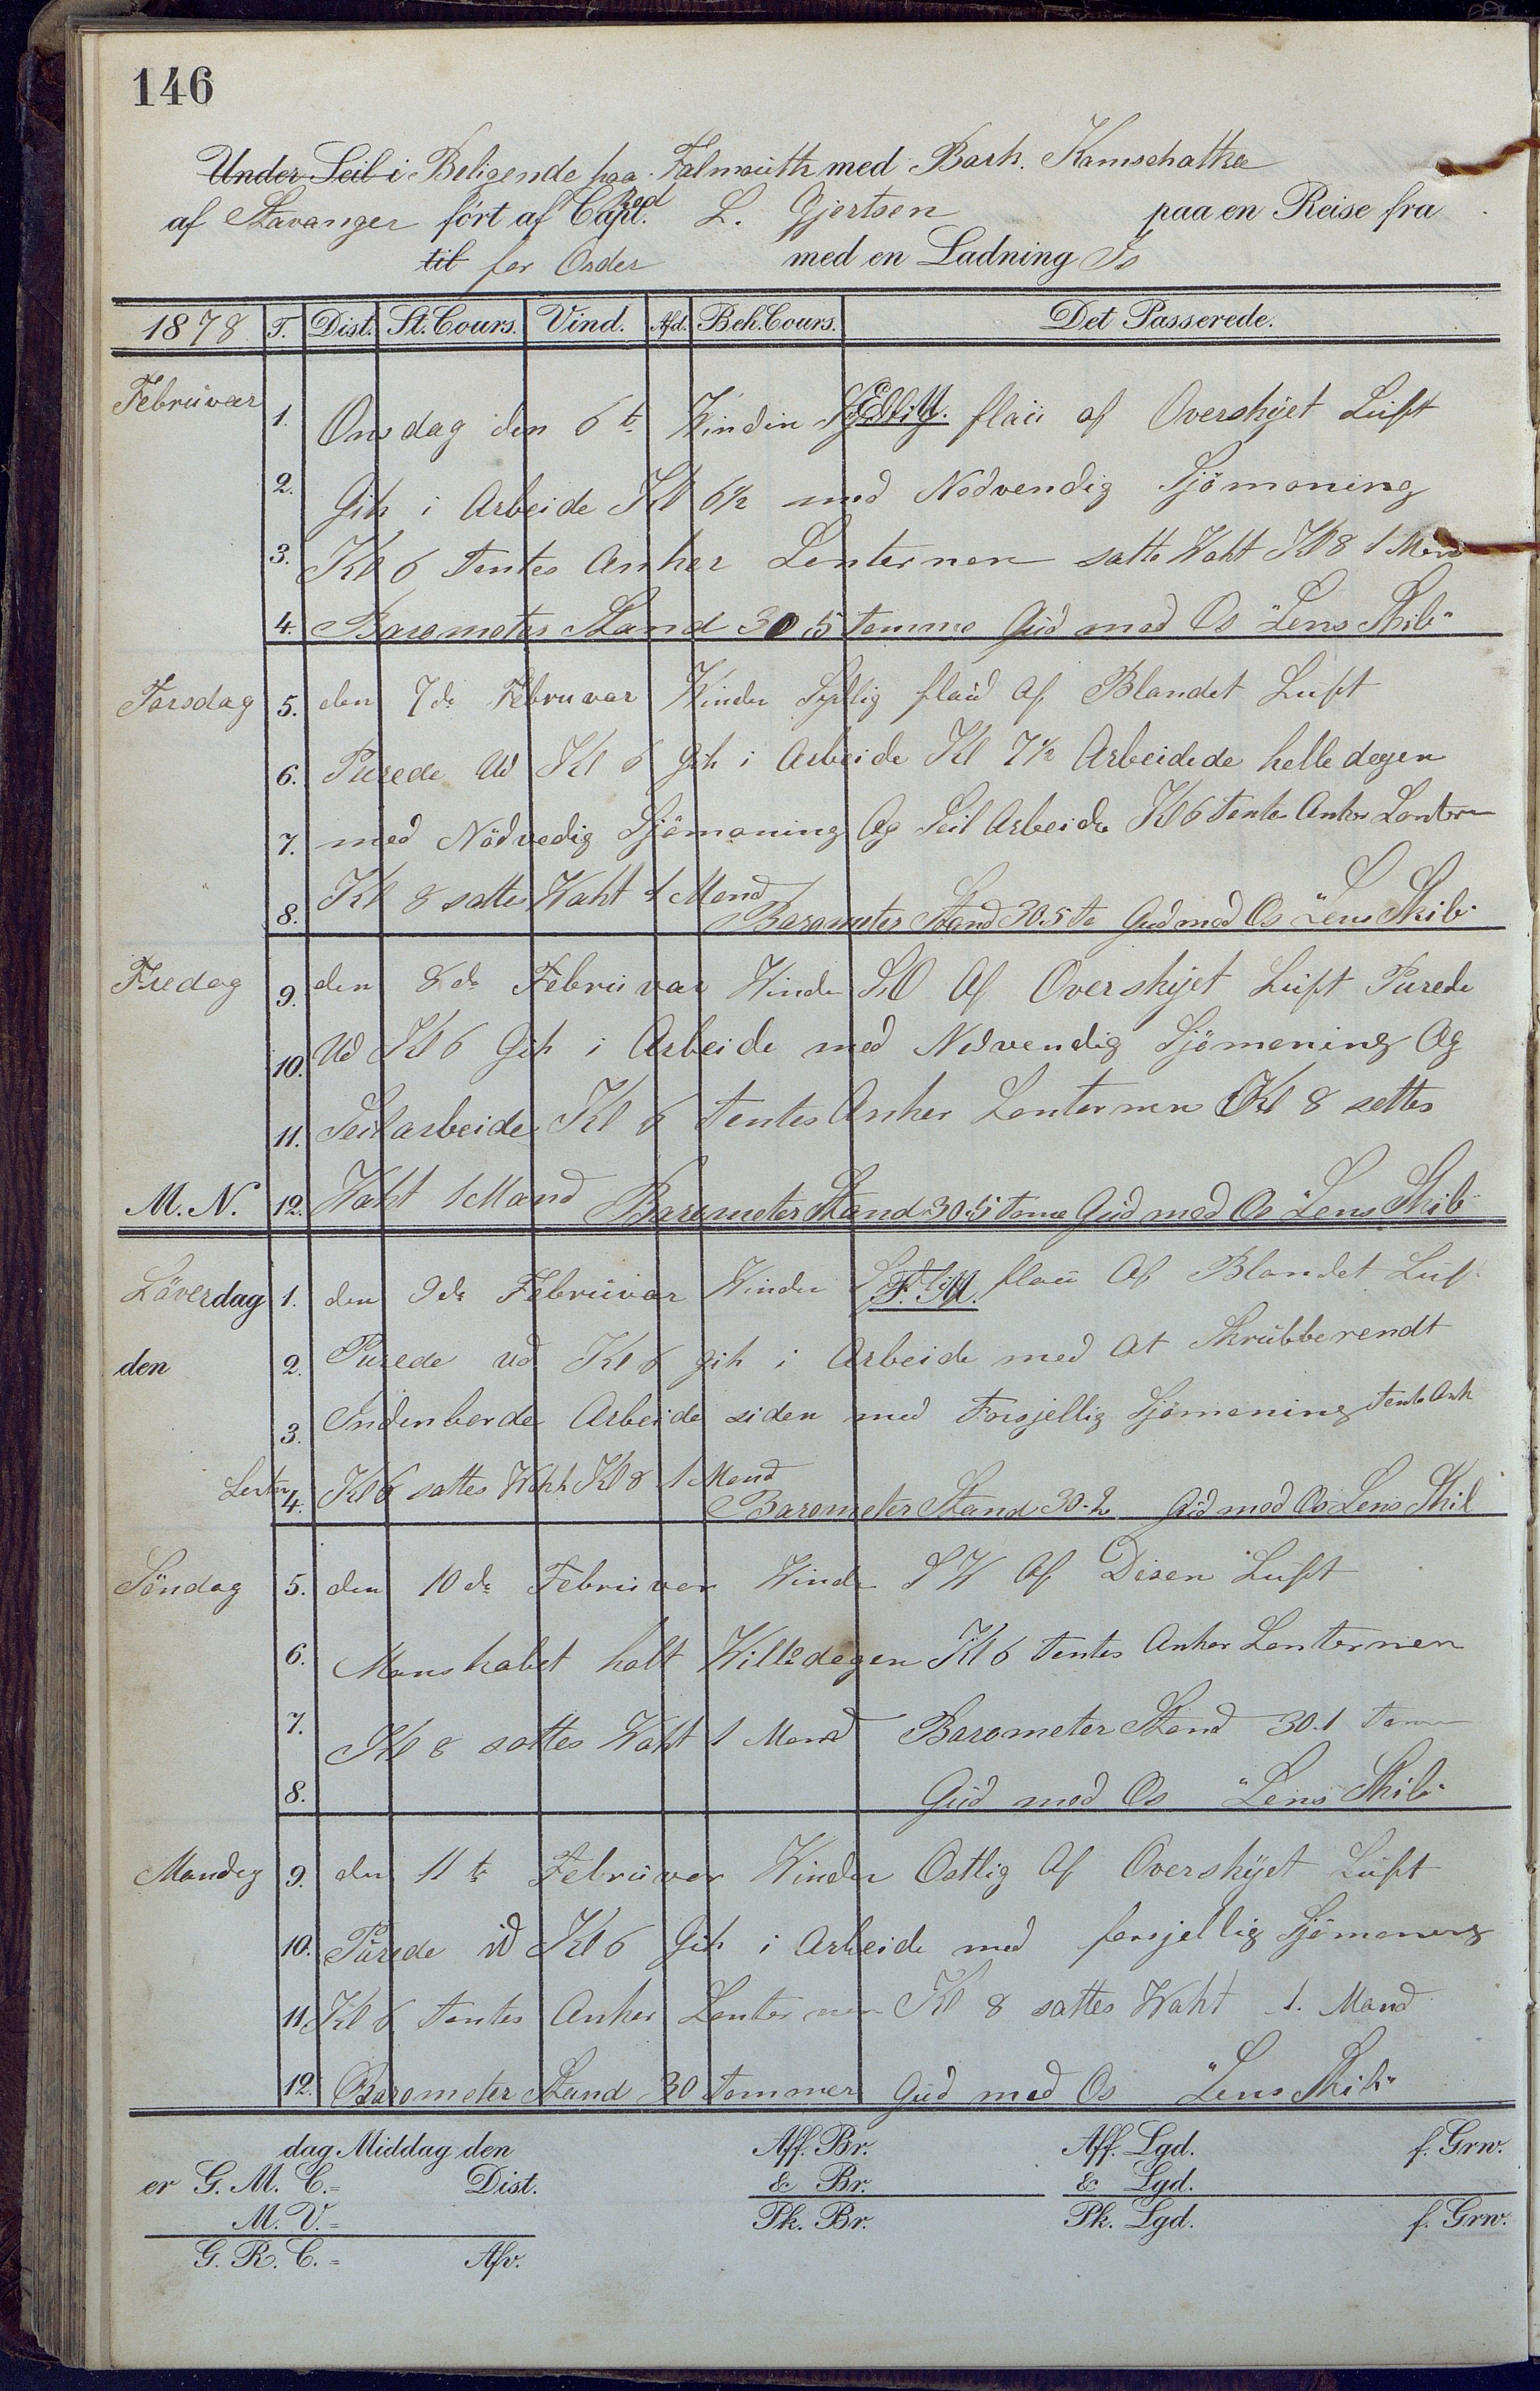 146
Under Seil i Beligende paa Falmouth Red med Bark. Kamschatka
af Stavanger fört af Capt. L. Gjertsen paa en Reise fra
til for Order med en Ladning Is
1878 T. Dist. St. Cours. Vind. Afd. Beh. Cours. Det Passerede.
Februvar 1. Onsdag den 6te Vinden E.M. flau af Overskyet Luft
2. Gik i Arbeide Kl 6½ med Nödvendig Sjömaning
3. Kl 6 Tentes Anker Lenternen sattes Waht Kl 8 1 Mand
4. Barometer Stand 30.5 tomme Gud med Os "Lens Skib"
Torsdag 5. den 7de Februvar Winden Sydlig flaud af Blandet Luft
6. Purede Ud Kl 6 Gik i Arbeide Kl 7½ Arbeidede helle dagen
7. med Nödvedig Sjömaning Og Seil Arbeide Kl 6 Tentes Anker Lantern
8. Kl 8 sattes Waht 1 Mand Barometer Stand 30.5 to Gud med Os "Lens Skib"
Fredag 9. den 8de Februvar Winde SO Af Overskyet Luft Purede
10. Ud Kl 6 Gik i Arbeide med Nödvendig Sjömaning Og
11. Seilarbeide Kl 6 Tentes Anker Lenternen Kl 8 settes
M. N. 12. Waht 1 Mand Barometer Stand 30.5 tome Gud med Os "Lens Skib"
Löverdag 1. den 9de Februvar Winden F.M. flau Af Blandet Luf
den 2. Purede ud Kl 6 gik i Arbeide med At Skrubberendt
3. Indenborde Arbeide siden med Forsjellig Sjömaning Tents Ank
Lenter 4. Kl 6 sattes Waht Kl 8 1 Mand Barometer Stand 30.2 Gud med Os Lens Skib
Söndag 5. den 10de Februver Winde SW Af Disen Luft
6. Manskabet holt Willedagen Kl 6 Tentes Anker Lenternen
7. Kl 8 sattes Waht 1 Mand Barometer Stand 30.1 tom
8. Gud med Os "Lens Skib"
Mandag 9. den 11te Februver Winden Ostlig Af Overskyet Luft
10. Purede Ud Kl 6 Gik i Arbeide med forsjellig Sjömaning
11. Kl 6 Tentes Anker Lenternen Kl 8 sattes Waht 1. Mand
12. Barometer Stand 30 Tommer Gud med Os "Lens Skib"
dag Middag den Aff. Br. Aff. Lgd. f. Grw.
er G. M. C. = Dist. & Br. & Lgd.
M. V. = Pk. Br. Pk. Lgd. f. Grw.
G. R. C. = Afv.